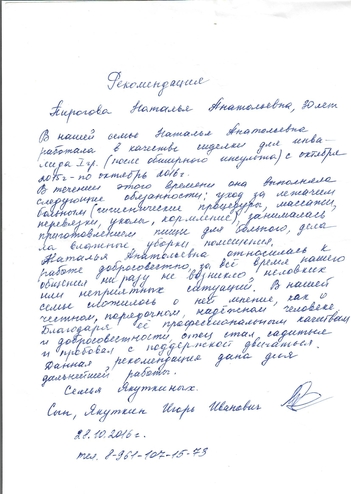 Рекомендация
Пирогова Наталья Анатольевна, 30 лет
В нашей семье Наталья Анатольевна
работала в качестве сиделки для инва-
лида I гр. (после обширного инсульта) с октября
2015 г. по октябрь 2016 г.
В течении этого времени она выполняла
следующие обязанности: уход за лежачим
больным (гигиенические процедуры, массажи,
перевязки, уколы, кормление), занималась
приготовлением пищи для больного, дела-
ла влажные уборки помещения.
Наталья Анатольевна относилась к
работе добросовестно, за всё время нашего
общения ни разу не возникло неловких
или неприятных ситуаций. В нашей
семье сложилось о ней мнение, как о
честном, порядочном, надёжном человеке.
Благодаря её профессиональным качествам
и добросовестности отец стал садиться
и пробовал с поддержкой двигаться.
Данная рекомендация дана для
дальнейшей работы.
Семья Якуткиных.
Сын, Якуткин Игорь Иванович
28.10.2016 г.
тел. 8-961-107-15-73